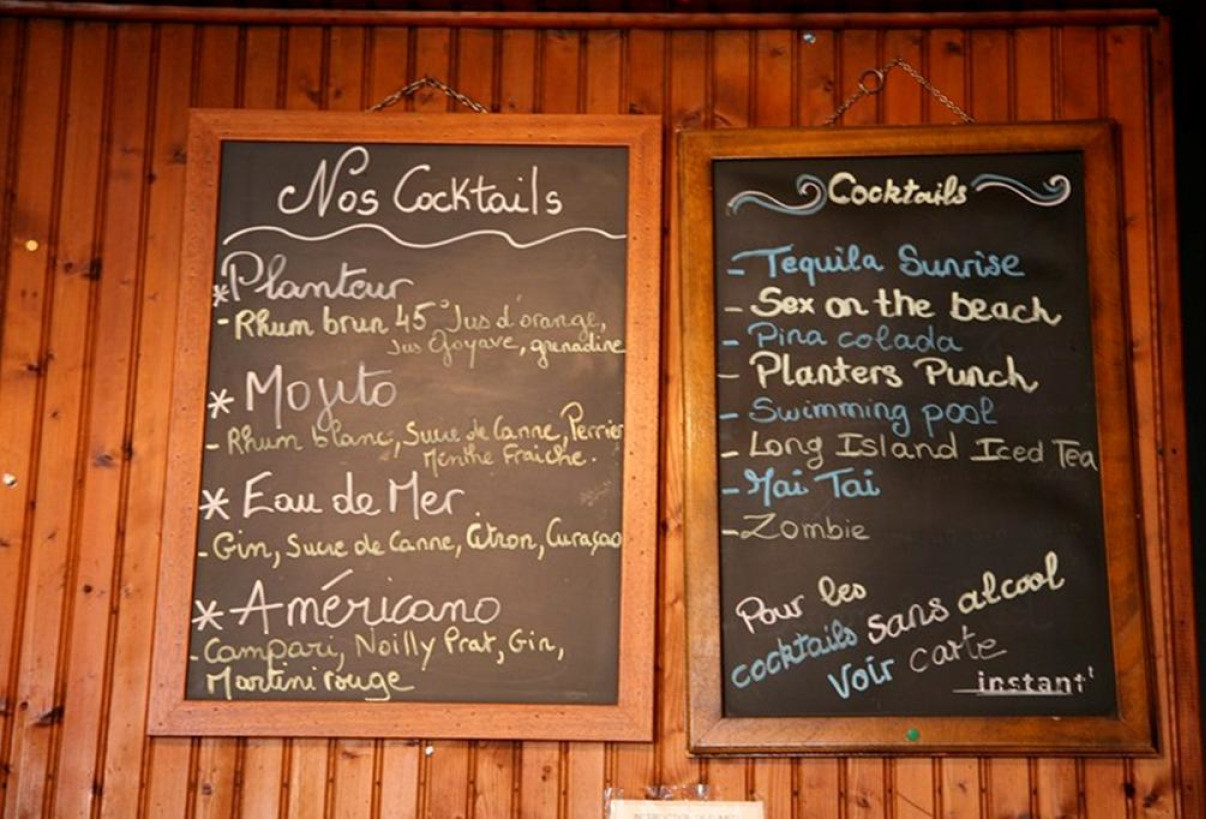 Nos Cocktails
*Planteur
- Rhum brun 45° Jus d'orange,
Jus Goyave, grenadine
* Mojito
- Rhum blanc, Sucre de Canne, Perrier
Menthe Fraiche.
* Eau de Mer
- Gin, Sucre de Canne, Citron, Curaçao
* Américano
- Campari, Noilly Prat, Gin,
Martini rouge
Cocktails
- Tequila Sunrise
- Sex on the beach
- Pina colada
- Planters Punch
- Swimming pool
- Long Island Iced Tea
- Mai Tai
- Zombie
Pour les
cocktails sans alcool
Voir carte
instant'